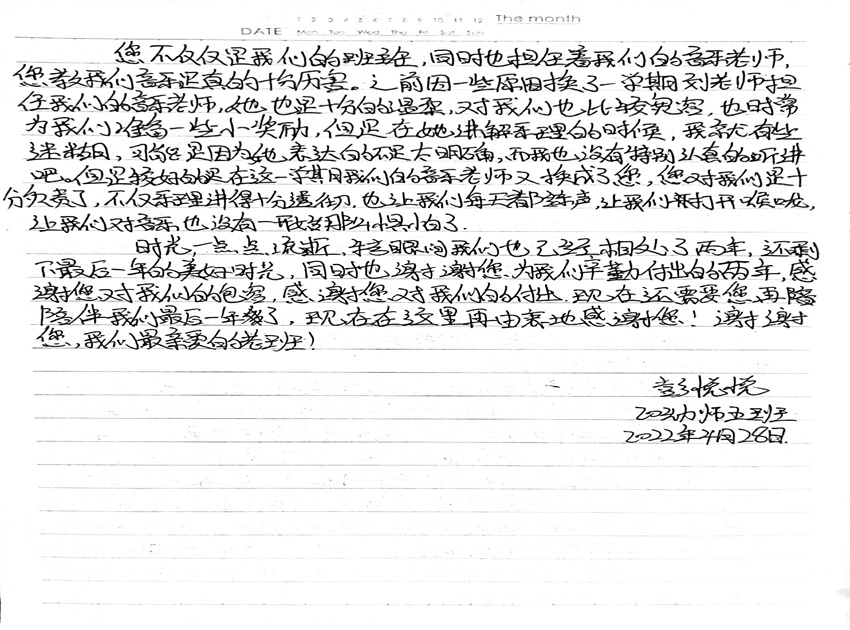 1 2 3 4 5 6 7 8 9 10 11 12 The month
DATE Mon Tue Wed Thu Fri Sat Sun
您不仅仅是我们的班主任，同时也担任着我们的音乐老师，
您教我们音乐是真的十分厉害。之前因一些原因换了一学期刘老师担
任我们的音乐老师，她也是十分的温柔，对我们也比较宽容，也时常
为我们准备一些小奖励，但是在她讲解乐理的时候，我亲尤有些
迷糊，可能是因为她表达的不是太明确，而我也没有特别认真的听讲
吧。但是较好的是在这一学期我们的音乐老师又换成了您，您对我们是十
分负责了，不仅乐理讲得十分透彻，也让我们每天都练声，让我们打开喉咙，
让我们对音乐也没有一开始那么惧怕了。
时光一点点流逝，转眼间我们也已经相处了两年，还剩
下最后一年的美好时光，同时也谢谢您为我们辛勤付出的两年，感
谢您对我们的包容，感谢您对我们的付出，现在还需要您再陪
陪伴我们最后一年载了，现在在这里再由衷地感谢您！谢谢
您，我们最亲爱的老班！
彭悦悦
幼师五班
2022年4月28日